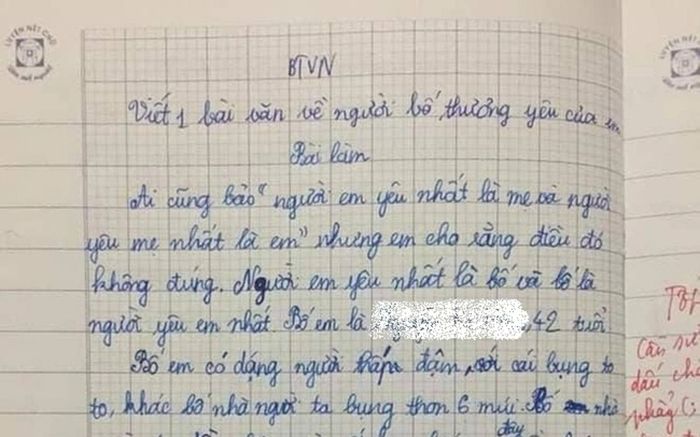 LUYỆN NÉT CHỮ
BTVN
Viết 1 bài văn về người bố thương yêu của em
Bài làm
Ai cũng bảo "người em yêu nhất là mẹ và người
yêu mẹ nhất là em" nhưng em cho rằng điều đó
không đúng. Người em yêu nhất là bố và bố là
người yêu em nhất Bố em là , 42 tuổi
Bố em có dáng người thấp đậm, với cái bụng to
to, khác bố nhà người ta bụng thon 6 múi. Bố nhà
đây
Cần sử
dấu chấ
phẩy (: